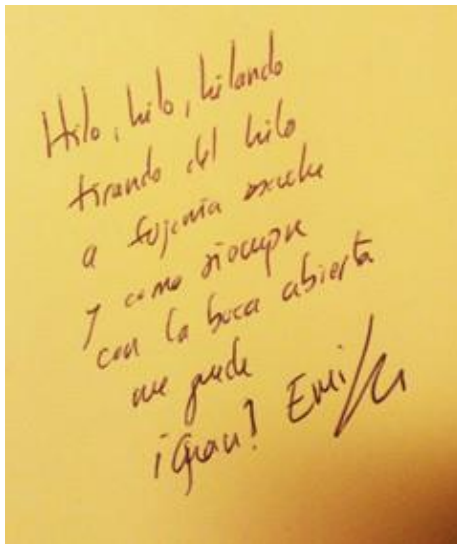 Hilo, hilo, hilando
tirando del hilo
a Eugenia escuche
y como siempre
con la boca abierta
me quede
¡Gran!